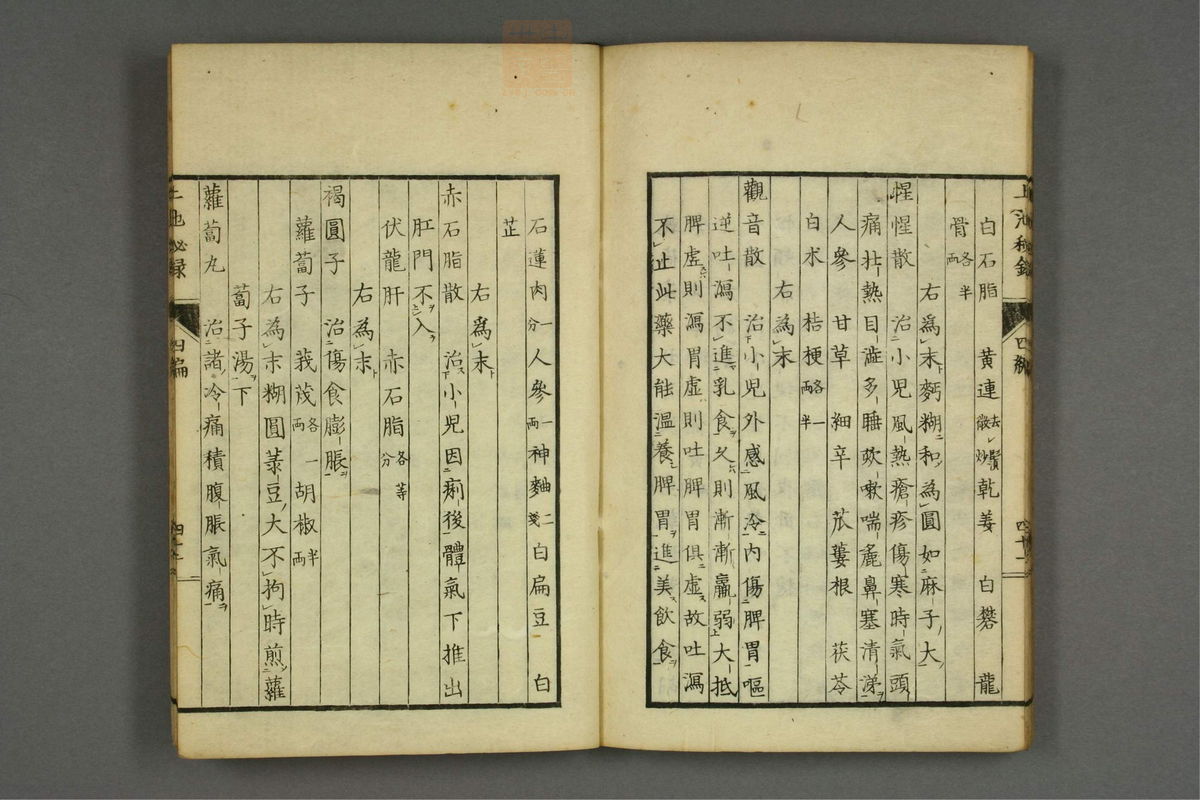 白石脂　黄連去鬚微炒　乾姜　白礬　龍
骨各半両
右為末麪糊和為圓如麻子大
惺惺散　治小児風熱瘡疹傷寒時氣頭
痛壮熱目澁多睡欬嗽喘麁鼻塞清涕
人參　甘草　細辛　苽蔞根　茯苓
白朮　桔梗各一両半
右為末
觀音散　治小児外感風冷内傷脾胃嘔
逆吐瀉不進乳食久則漸漸羸弱大抵
脾虚則瀉胃虚則吐脾胃俱虚故吐瀉
不止此藥大能温養脾胃進美飲食
石蓮肉一分　人參一両　神麯二戔　白扁豆　白
芷
右為末
赤石脂散　治小児因痢後體氣下推出
肛門不入
伏龍肝　赤石脂各等分
右為末
褐圓子　治傷食膨脹
蘿蔔子　莪茂各一両　胡椒半両
右為末糊圓菉豆大不拘時煎蘿
蔔子湯下
蘿蔔丸　治諸冷痛積腹脹氣痛
上池秘録　四編